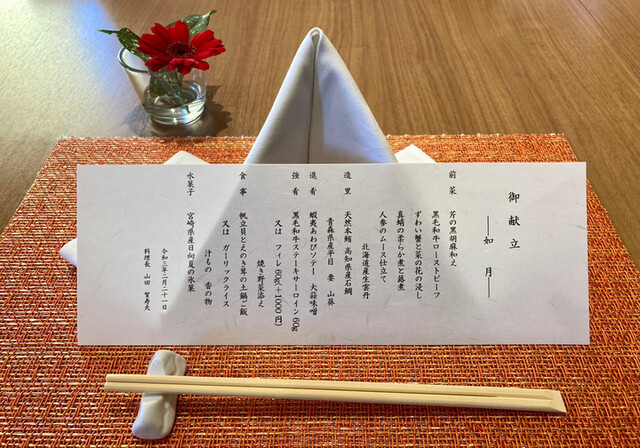 御献立
――如 月――
前菜 芹の黒胡麻和え
黒毛和牛ローストビーフ
ずわい蟹と菜の花の浸し
真蛸の柔らか煮と蕗煮
人参のムース仕立て
造里 天然本鮪 高知県産石鯛 北海道産生雲丹
青森県産平目 妻 山葵
進肴 蝦夷あわびソテー 大蒜味噌
強肴 黒毛和牛ステーキサーロイン60g
又は フィレ60g(+1000円)
焼き野菜添え
食事 帆立貝とえのき茸の土鍋ご飯
又は ガーリックライス
汁もの 香の物
水菓子 宮崎県産日向夏の氷菓
令和三年二月二十一日
料理長 山田 賢寿夫